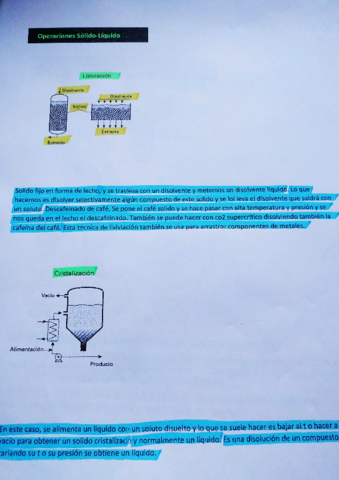 Operaciones Sólido-Líquido
Lixiviación
Disolvente
Disolvente
Sólido
Extracto
Extracto
Solido fijo en forma de lecho, y se traviesa con un disolvente y metemos un disolvente liquido. Lo que
hacemos es disolver selectivamente algún compuesto de este solido y se loi leva el disolvente que saldrá con
un soluto. Descafeinado de café. Se pone el café solido y se hace pasar con alta temperatura y presión y se
nos queda en el lecho el descafeinado. También se puede hacer con co2 supercrítico disolviendo también la
cafeína del café. Esta técnica de lixiviación también se usa para arrastrar componentes de metales.
Cristalización
Vacío
Alimentación
Producto
En este caso, se alimenta un liquido con un soluto disuelto y lo que se suele hacer es bajar al t o hacer a
vacio para obtener un solido cristalizado y normalmente un liquido. Es una disolución de un compuesto
variando su t o su presión se obtiene un liquido.